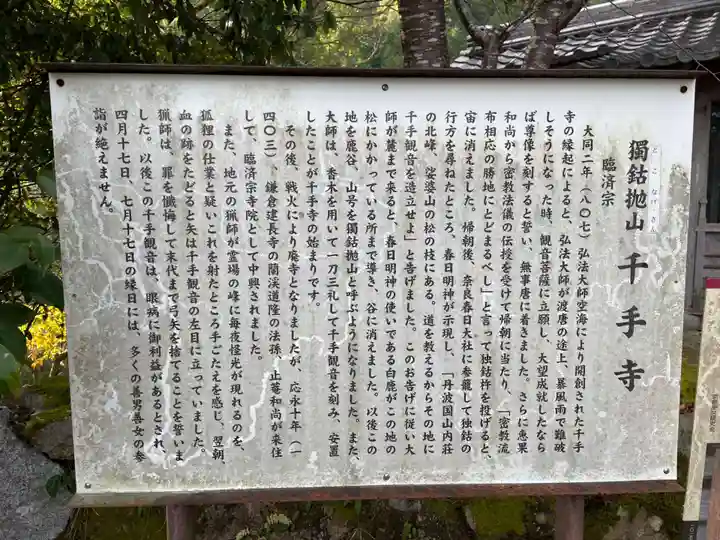 獨鈷抛山 千手寺
とこなげさん
臨済宗
大同二年（八〇七）弘法大師空海により開創された千手
寺の縁起によると、弘法大師が渡唐の途上、暴風雨で難破
しそうになった時、観音菩薩に立願し、大望成就したなら
ば尊像を刻すると誓い、無事唐に着きました。さらに恵果
和尚から密教法儀の伝授を受けて帰朝に当たり、「密教流
布相応の勝地にとどまるべし」と言って独鈷杵を投げると、
宙に消えました。帰朝後、奈良春日大社に参籠して独鈷の
行方を尋ねたところ、春日明神が示現し、「丹波国山内荘
の北峰、娑婆山の松の枝にある。道を教えるからその地に
千手観音を造立せよ」と告げました。このお告げに従い大
師が麓まで来ると、春日明神の使いである白鹿がこの地の
松にかかっている所まで導き、谷に消えました。以後この
地を鹿谷、山号を獨鈷抛山と呼ぶようになりました。また、
大師は、香木を用いて一刀三礼して千手観音を刻み、安置
したことが千手寺の始まりです。
その後、戦火により廃寺となりましたが、応永十年（一
四〇三）、鎌倉建長寺の蘭渓道隆の法孫、止菴和尚が来住
して、臨済宗寺院として中興されました。
また、地元の猟師が霊場の峰に毎夜怪光が現れるのを、
狐狸の仕業と疑いこれを射たところ手ごたえを感じ、翌朝
血の跡をたどると矢は千手観音の左目に立っていました。
猟師は、罪を懺悔して末代まで弓矢を捨てることを誓いま
した。以後この千手観音は、眼病に御利益があるとされ、
四月十七日、七月十七日の縁日には、多くの善男善女の参
詣が絶えません。